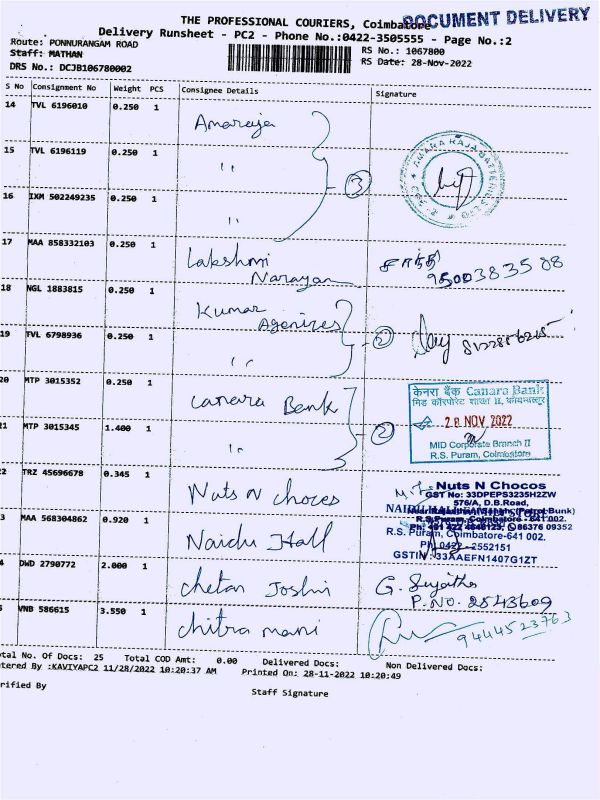 DOCUMENT DELIVERY
THE PROFESSIONAL COURIERS, Coimbatore
Delivery Runsheet - PC2 - Phone No.:0422-3505555 - Page No.:2
Route: PONNURANGAM ROAD
RS No.: 1067800
Staff: MATHAN
RS Date: 28-Nov-2022
DRS No.: DCJB106780002
S No Consignment No Weight PCS Consignee Details Signature
14 TVL 6196010 0.250 1 Amaraja
15 TVL 6196119 0.250 1 ''
AMARA RAJA BATTERIES LTD
3
16 IXM 502249235 0.250 1 ''
17 MAA 858332103 0.250 1 Lakshmi
Narayan
95003 83588
18 NGL 1883815 0.250 1 Kumar
Agencies
2
19 TVL 6798936 0.250 1 ''
20 MTP 3015352 0.250 1 Canara Bank
केनरा बैंक Canara Bank
मिड कॉरपोरेट शाखा II, कोयम्बत्तूर
28 NOV 2022
MID Corporate Branch II
R.S. Puram, Coimbatore
2
21 MTP 3015345 1.400 1 ''
22 TRZ 45696678 0.345 1 Nuts N choces
Nuts N Chocos
GST No: 33DPEPS3235H2ZW
576/A, D.B.Road,
R.S.Puram, Coimbatore - 641 002.
3 MAA 568304862 0.920 1 Naidu Hall
R.S. Puram, Coimbatore-641 002.
Ph: 0422-2552151
GSTIN: 33AAEFN1407G1ZT
4 DWD 2790772 2.000 1 chetan Joshi
G. Sujatha
P.NO. 2543609
5 VNB 586615 3.550 1 chitra mani
9444523763
otal No. Of Docs: 25 Total COD Amt: 0.00 Delivered Docs: Non Delivered Docs:
tered By :KAVIYAPC2 11/28/2022 10:20:37 AM Printed On: 28-11-2022 10:20:49
rified By
Staff Signature